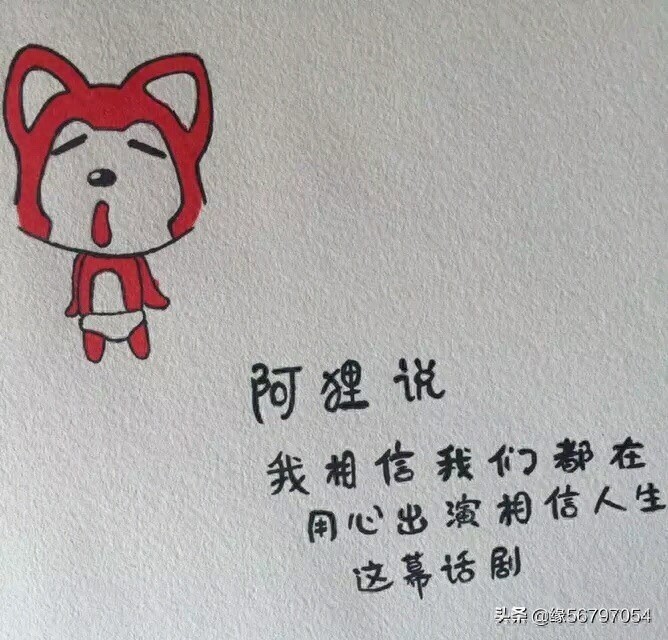 阿狸说
我相信我们都在
用心出演相信人生
这幕话剧
头条 @缘56797054